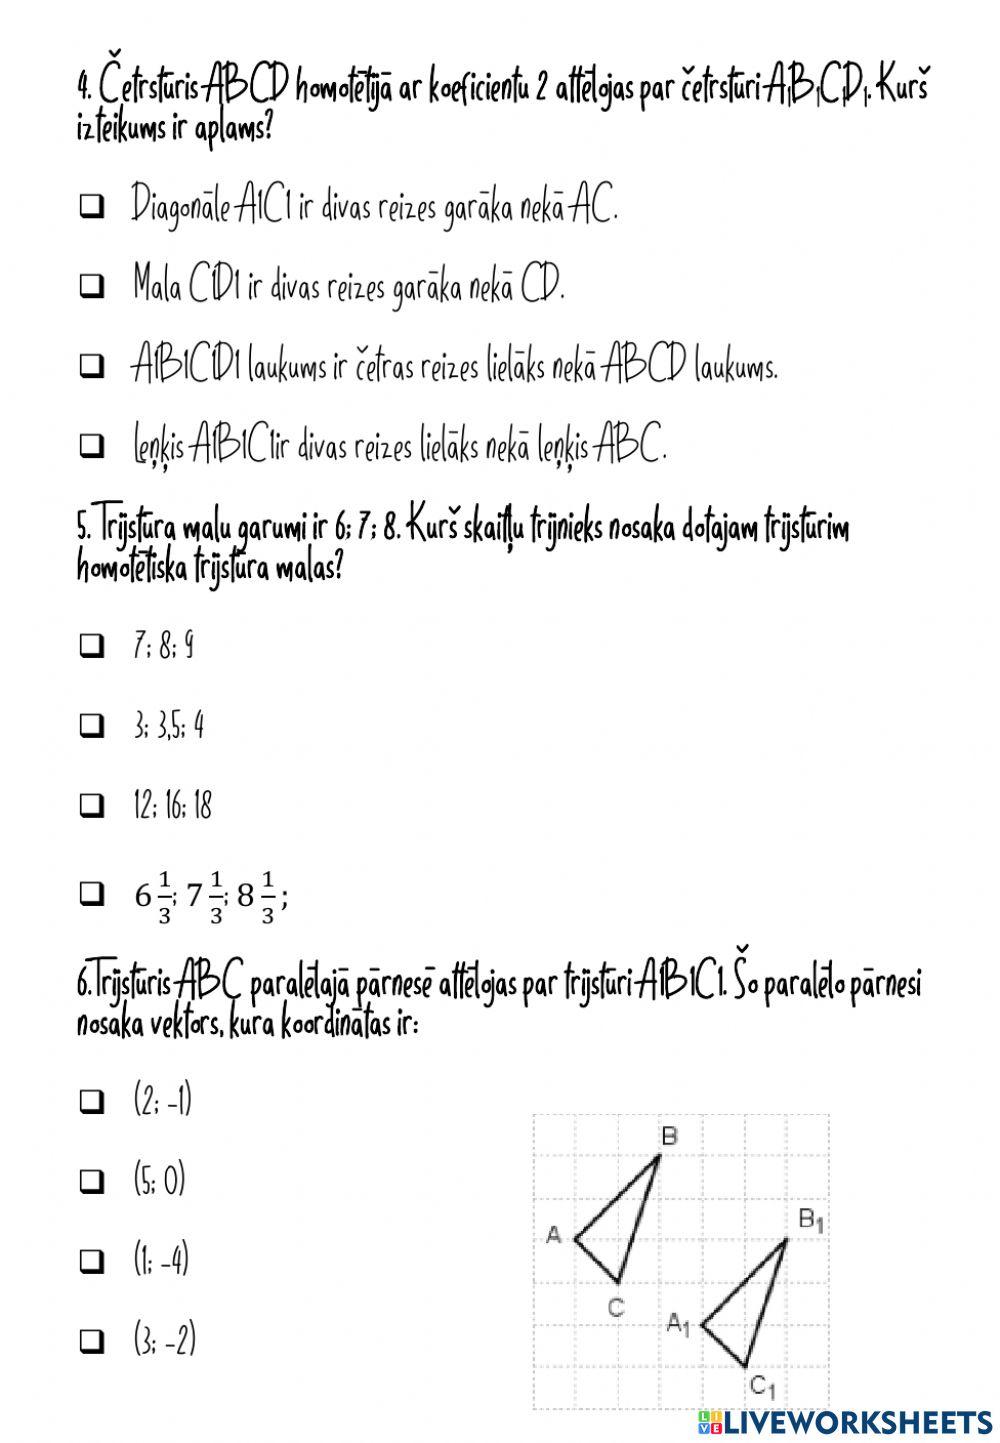 4. Četrstūris ABCD homotētijā ar koeficientu 2 attēlojas par četrstūri A₁B₁C₁D₁. Kurš
izteikums ir aplams?
❑ Diagonāle A1C1 ir divas reizes garāka nekā AC.
❑ Mala C1D1 ir divas reizes garāka nekā CD.
❑ A1B1C1D1 laukums ir četras reizes lielāks nekā ABCD laukums.
❑ Leņķis A1B1C1ir divas reizes lielāks nekā leņķis ABC.
5. Trijstūra malu garumi ir 6; 7; 8. Kurš skaitļu trijnieks nosaka dotajam trijstūrim
homotētiska trijstūra malas?
❑ 7; 8; 9
❑ 3; 3,5; 4
❑ 12; 16; 18
❑ 6 1/3; 7 1/3; 8 1/3;
6.Trijstūris ABC paralēlajā pārnesē attēlojas par trijstūri A1B1C1. Šo paralēlo pārnesi
nosaka vektors, kura koordinātas ir:
❑ (2; -1)
❑ (5; 0)
❑ (1; -4)
❑ (3; -2)
B
A
C
B₁
A₁
C₁
LIVEWORKSHEETS